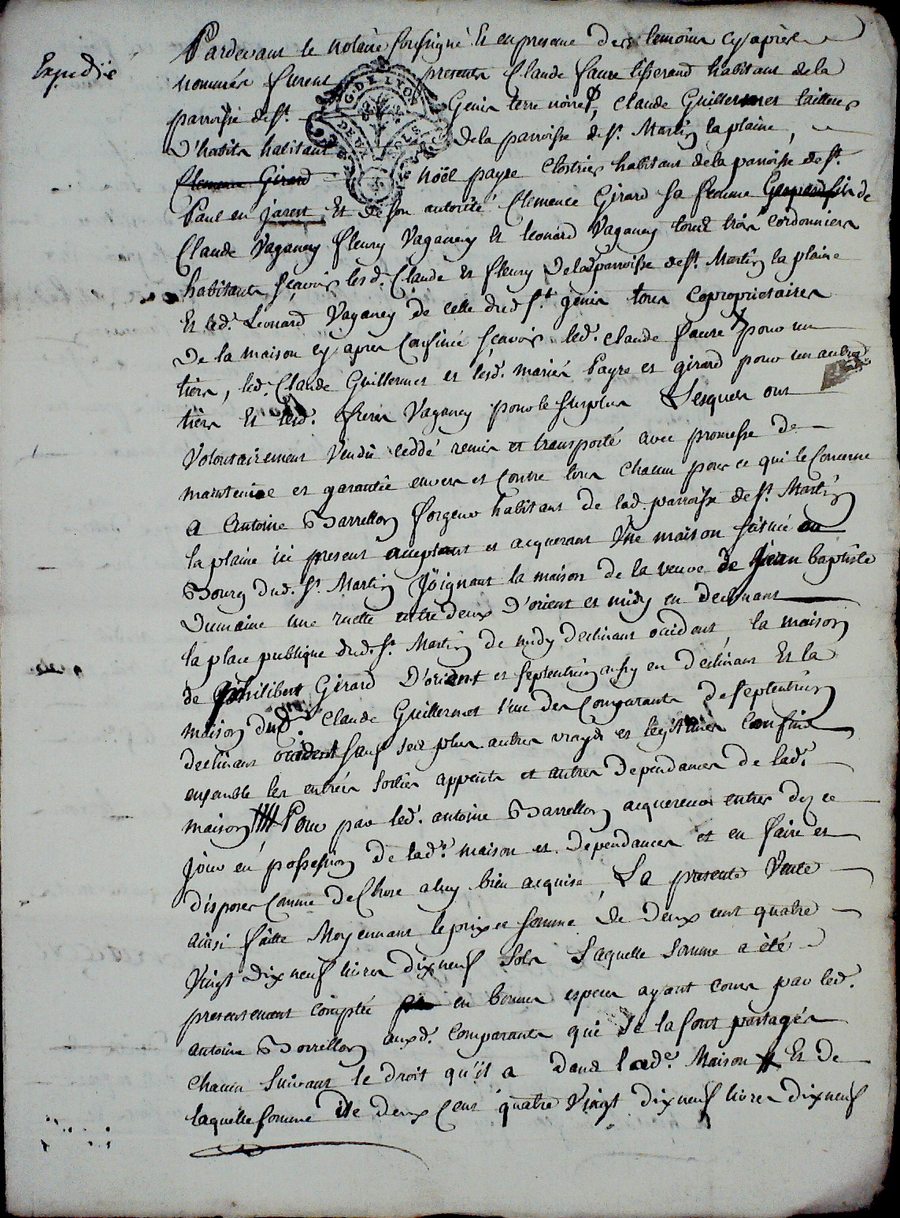 Expedié
Pardevant le Notaire soussigné Et en presence des temoins cy après
nommés furent presents Claude faure tisserand habitant de la
parroisse de St. Genis terre noire, Claude Guillermet tailleur
d'habits habitant de la parroisse de St. Martin la plaine,
Clemence Girard noël payre Clostrier habitant de la parroisse de St.
Paul en jarest Et de son autorité Clemence Girard sa femme de
Claude Vaganey fleury Vaganey Et Leonard Vaganey tous trois Cordonniers
habitants sçavoir lesd. Claude et fleury de lad parroisse de St. Martin la plaine
Et led. Leonard Vaganey de celle dud St. genis tous Coproprietaires
De la maison cy apres Confinée sçavoir led. Claude faure pour un
tiers, led. Claude Guillermet et lesd. mariés Payre et girard pour un autre
tiers Et lesd. freres Vaganey pour le surplus Lesquels ont
Volontairement Vendu ceddé remis et transporté avec promesse de
maintenue et garantie envers et Contre tous chacun pour ce qui le Concerne
a Antoine Barrellon forgeur habitant de lad. parroisse de St. Martin
la plaine ici present acceptant et acquerant Une maison situeé au
Bourg dud. St. Martin Joignant la maison de la veuve de Jean baptiste
Dumaine une ruette entre deux d'orient et midy en declinant
la place publique dud. St. Martin de midy declinant occident, la maison
de philibert Girard D'orient et septentrion en declinant Et la
maison dud. Claude Guillermet l'un des Comparants de septentrion
declinant occident sauf ses plus autres vrays et legitimes Confins
ensemble les entrées sorties appents et autres dependances de lad.
maison Pour par led. antoine Barrellon acquereur entrer dez ce
jour en possession de lad. maison et dependances et en faire et
disposer Comme de Chose a luy bien acquise, La presente Vente
ainsi faitte Moyennant le prix et somme de deux cent quatre
Vingt dix neuf livres dix neuf sols Laquelle somme a été
presentement comptée en bonnes especes ayant cours par led.
antoine Barrellon auxd. comparants qui se la sont partagés
Chacun suivant le droit qu'il a dans lade. Maison Et de
laquelle somme de deux Cent quatre Vingt dix neuf livres dix neuf